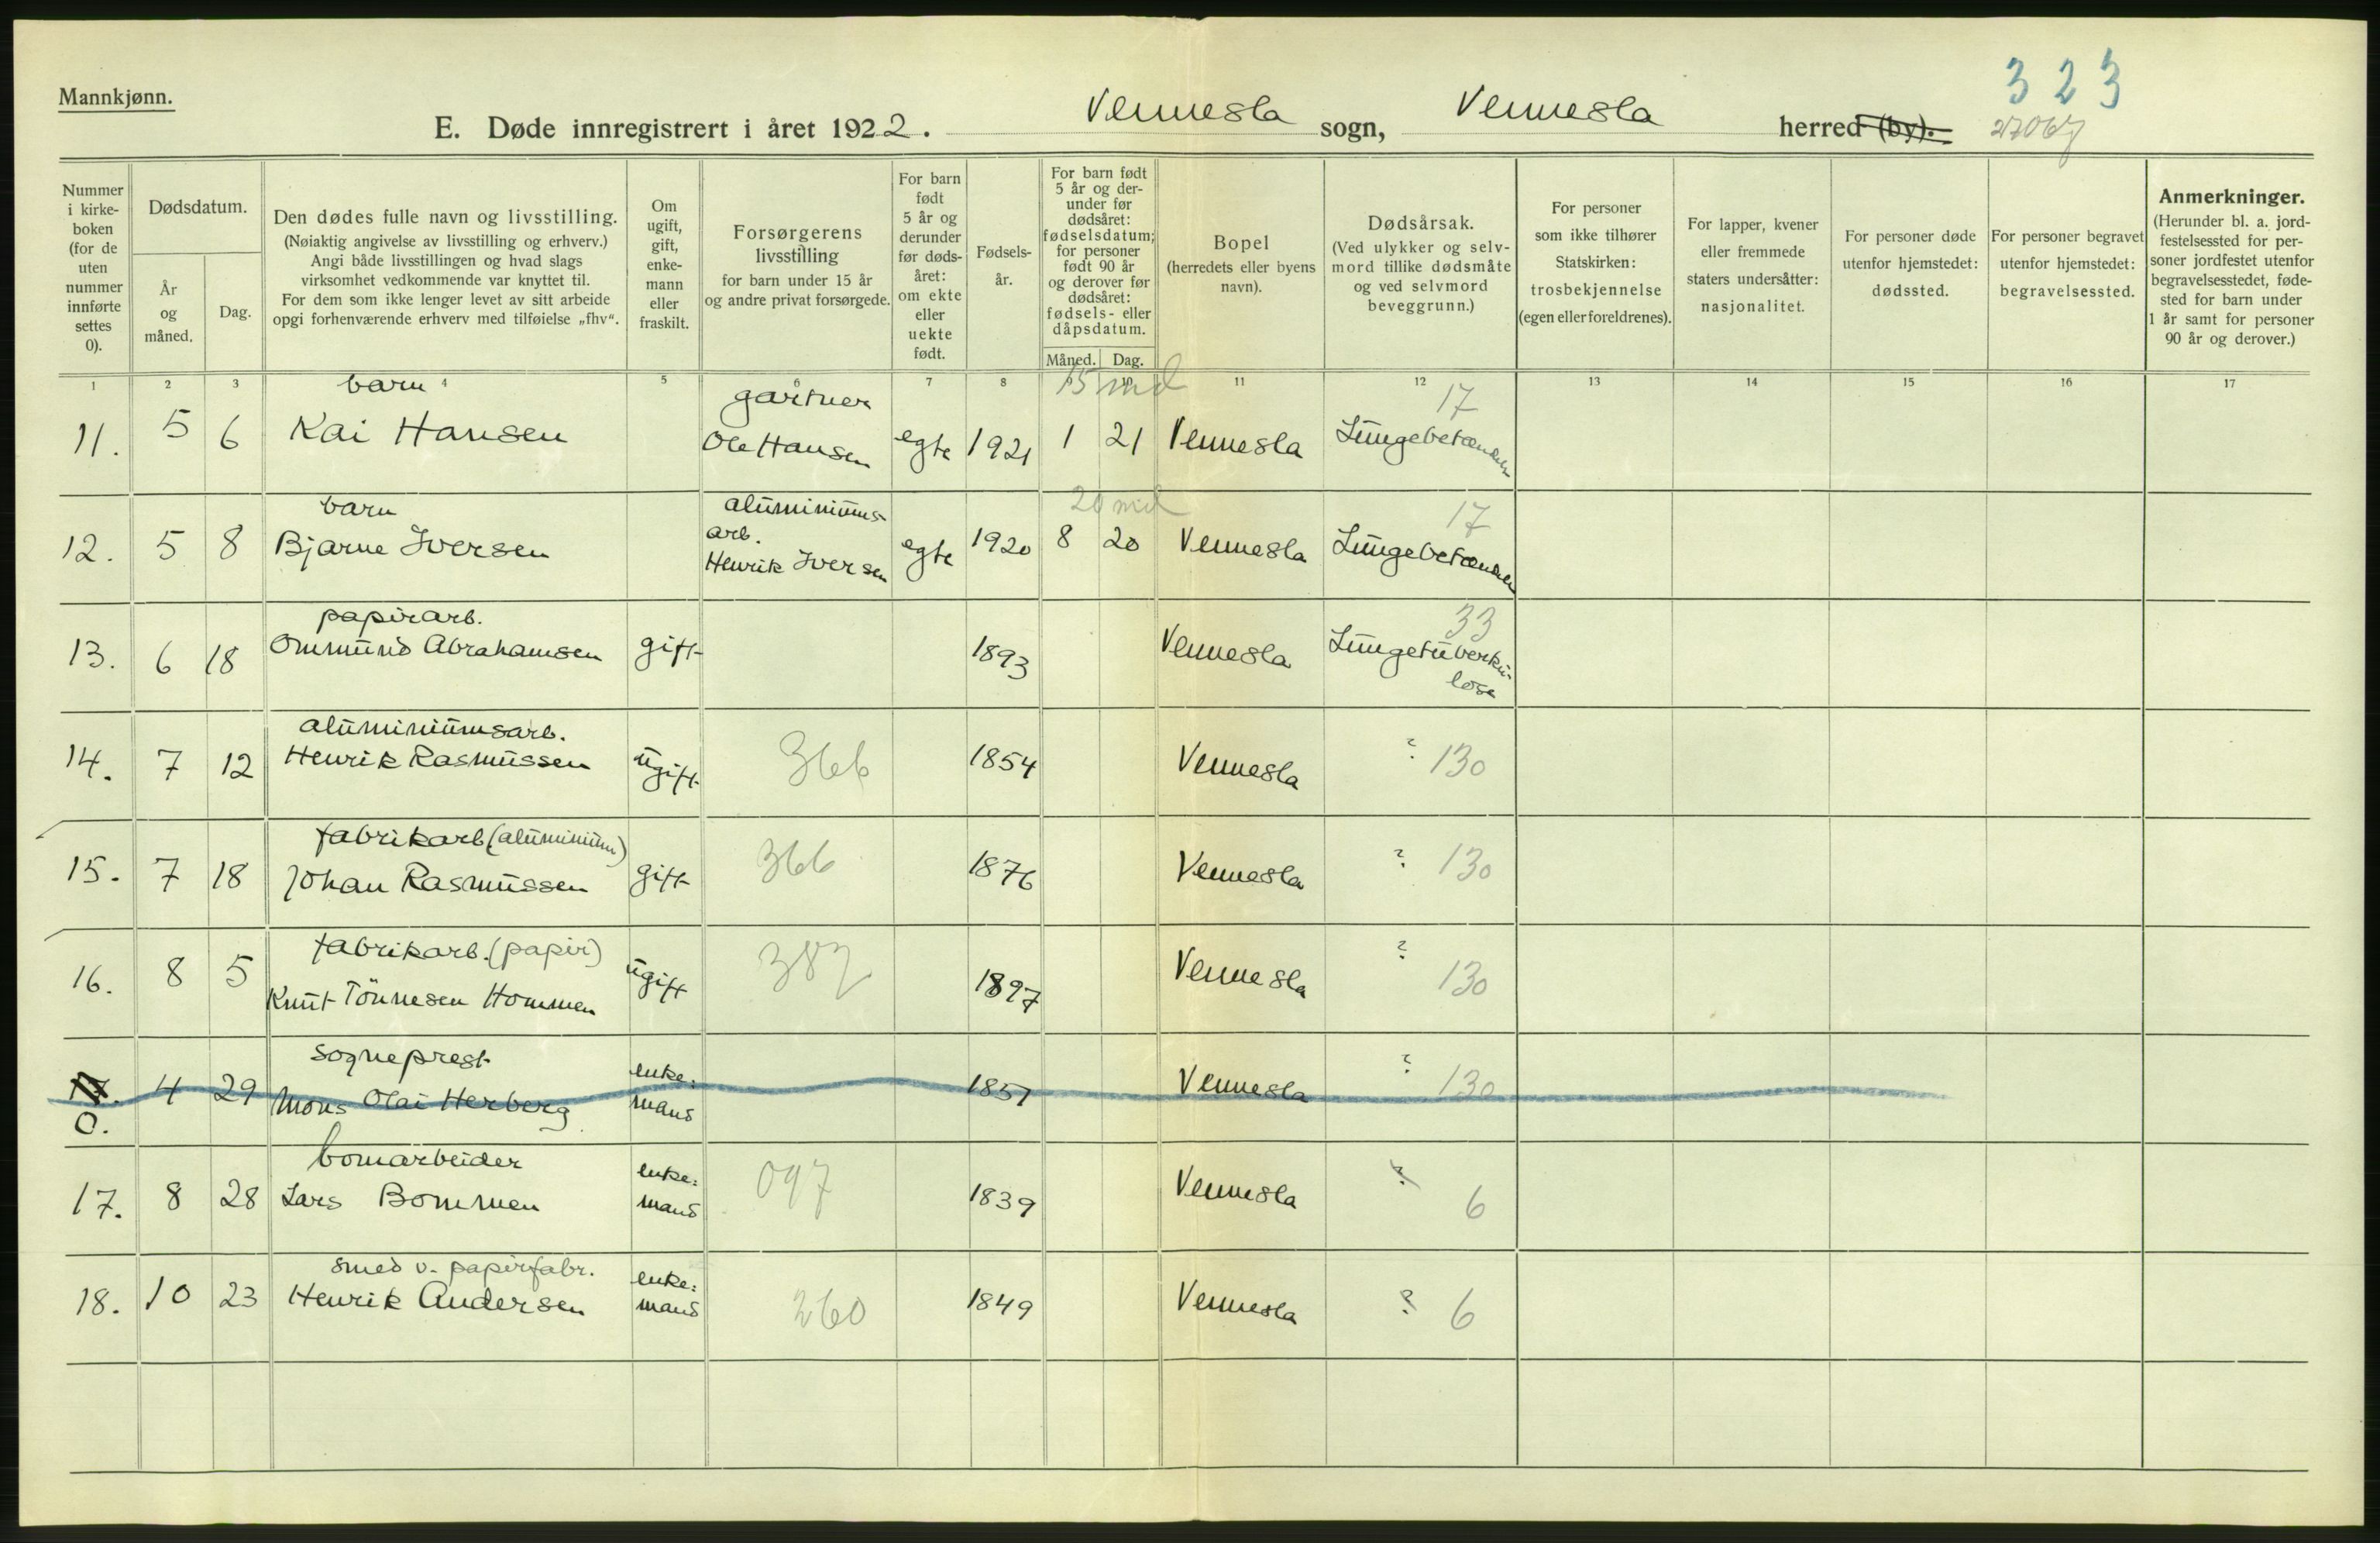 Mannkjønn.
3 2 3
E. Døde innregistrert i året 1922. Vennesla sogn, Vennesla herred (by).
Nummer i kirke- boken (for de uten nummer innførte settes 0).
Dødsdatum.
År og måned.
Dag.
Den dødes fulle navn og livsstilling.
(Nøiaktig angivelse av livsstilling og erhverv.)
Angi både livsstillingen og hvad slags
virksomhet vedkommende var knyttet til.
For dem som ikke lenger levet av sitt arbeide
opgi forhenværende erhverv med tilføielse „fhv“.
Om ugift, gift, enke- mann eller fraskilt.
Forsørgerens livsstilling
for barn under 15 år
og andre privat forsørgede.
For barn født 5 år og derunder før døds- året: om ekte eller uekte født.
Fødsels- år.
For barn født 5 år og der- under før dødsåret: fødselsdatum; for personer født 90 år og derover før dødsåret: fødsels- eller dåpsdatum.
Måned. Dag.
Bopel
(herredets eller byens navn).
Dødsårsak.
(Ved ulykker og selv- mord tillike dødsmåte og ved selvmord beveggrunn.)
For personer som ikke tilhører Statskirken: trosbekjennelse (egen eller foreldrenes).
For lapper, kvener eller fremmede staters undersåtter: nasjonalitet.
For personer døde utenfor hjemstedet: dødssted.
For personer begravet utenfor hjemstedet: begravelsessted.
Anmerkninger.
(Herunder bl. a. jord- festelsessted for per- soner jordfestet utenfor begravelsesstedet, føde- sted for barn under 1 år samt for personer 90 år og derover.)
1 2 3 4 5 6 7 8 9 10 11 12 13 14 15 16 17
barn gartner 15 md 17
11. 5 6 Kai Hansen Ole Hansen egte 1921 1 21 Vennesla Lungebetændelse
barn aluminiums- 20 md 17
arb.
12. 5 8 Bjarne Iversen Henrik Iversen egte 1920 8 20 Vennesla Lungebetændelse
papirarb. 33
13. 6 18 Ommund Abrahamsen gift 1893 Vennesla Lungetuberku-
lose
aluminiumsarb.
14. 7 12 Henrik Rasmussen ugift 366 1854 Vennesla ? 130
fabrikarb (aluminium)
15. 7 18 Johan Rasmussen gift 366 1876 Vennesla ? 130
fabrikarb. (papir)
16. 8 5 Knut Tönnesen Hommen ugift 387 1897 Vennesla ? 130
sogneprest enke:
0. 4 29 Mons Olai Herberg mand 1857 Vennesla ? 130
bomarbeider enke:
17. 8 28 Lars Bommen mand 097 1839 Vennesla ? 6
smed v. papirfabr. enke:
18. 10 23 Henrik Andersen mand 260 1849 Vennesla ? 6